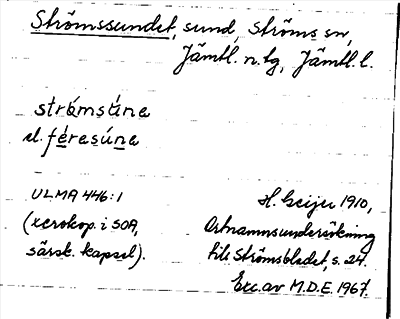 Strömssundet, sund, Ströms sn,
Jämtl. n. tg, Jämtl. l.
strǿmsúne
el. féresúne
ULMA 446:1
H. Geijer 1910,
(xerokop. i SOA,
Ortnamnsundersökning
särsk. kapsel).
till Strömsbladet, s. 24.
Exc. av M.D.E. 1967.